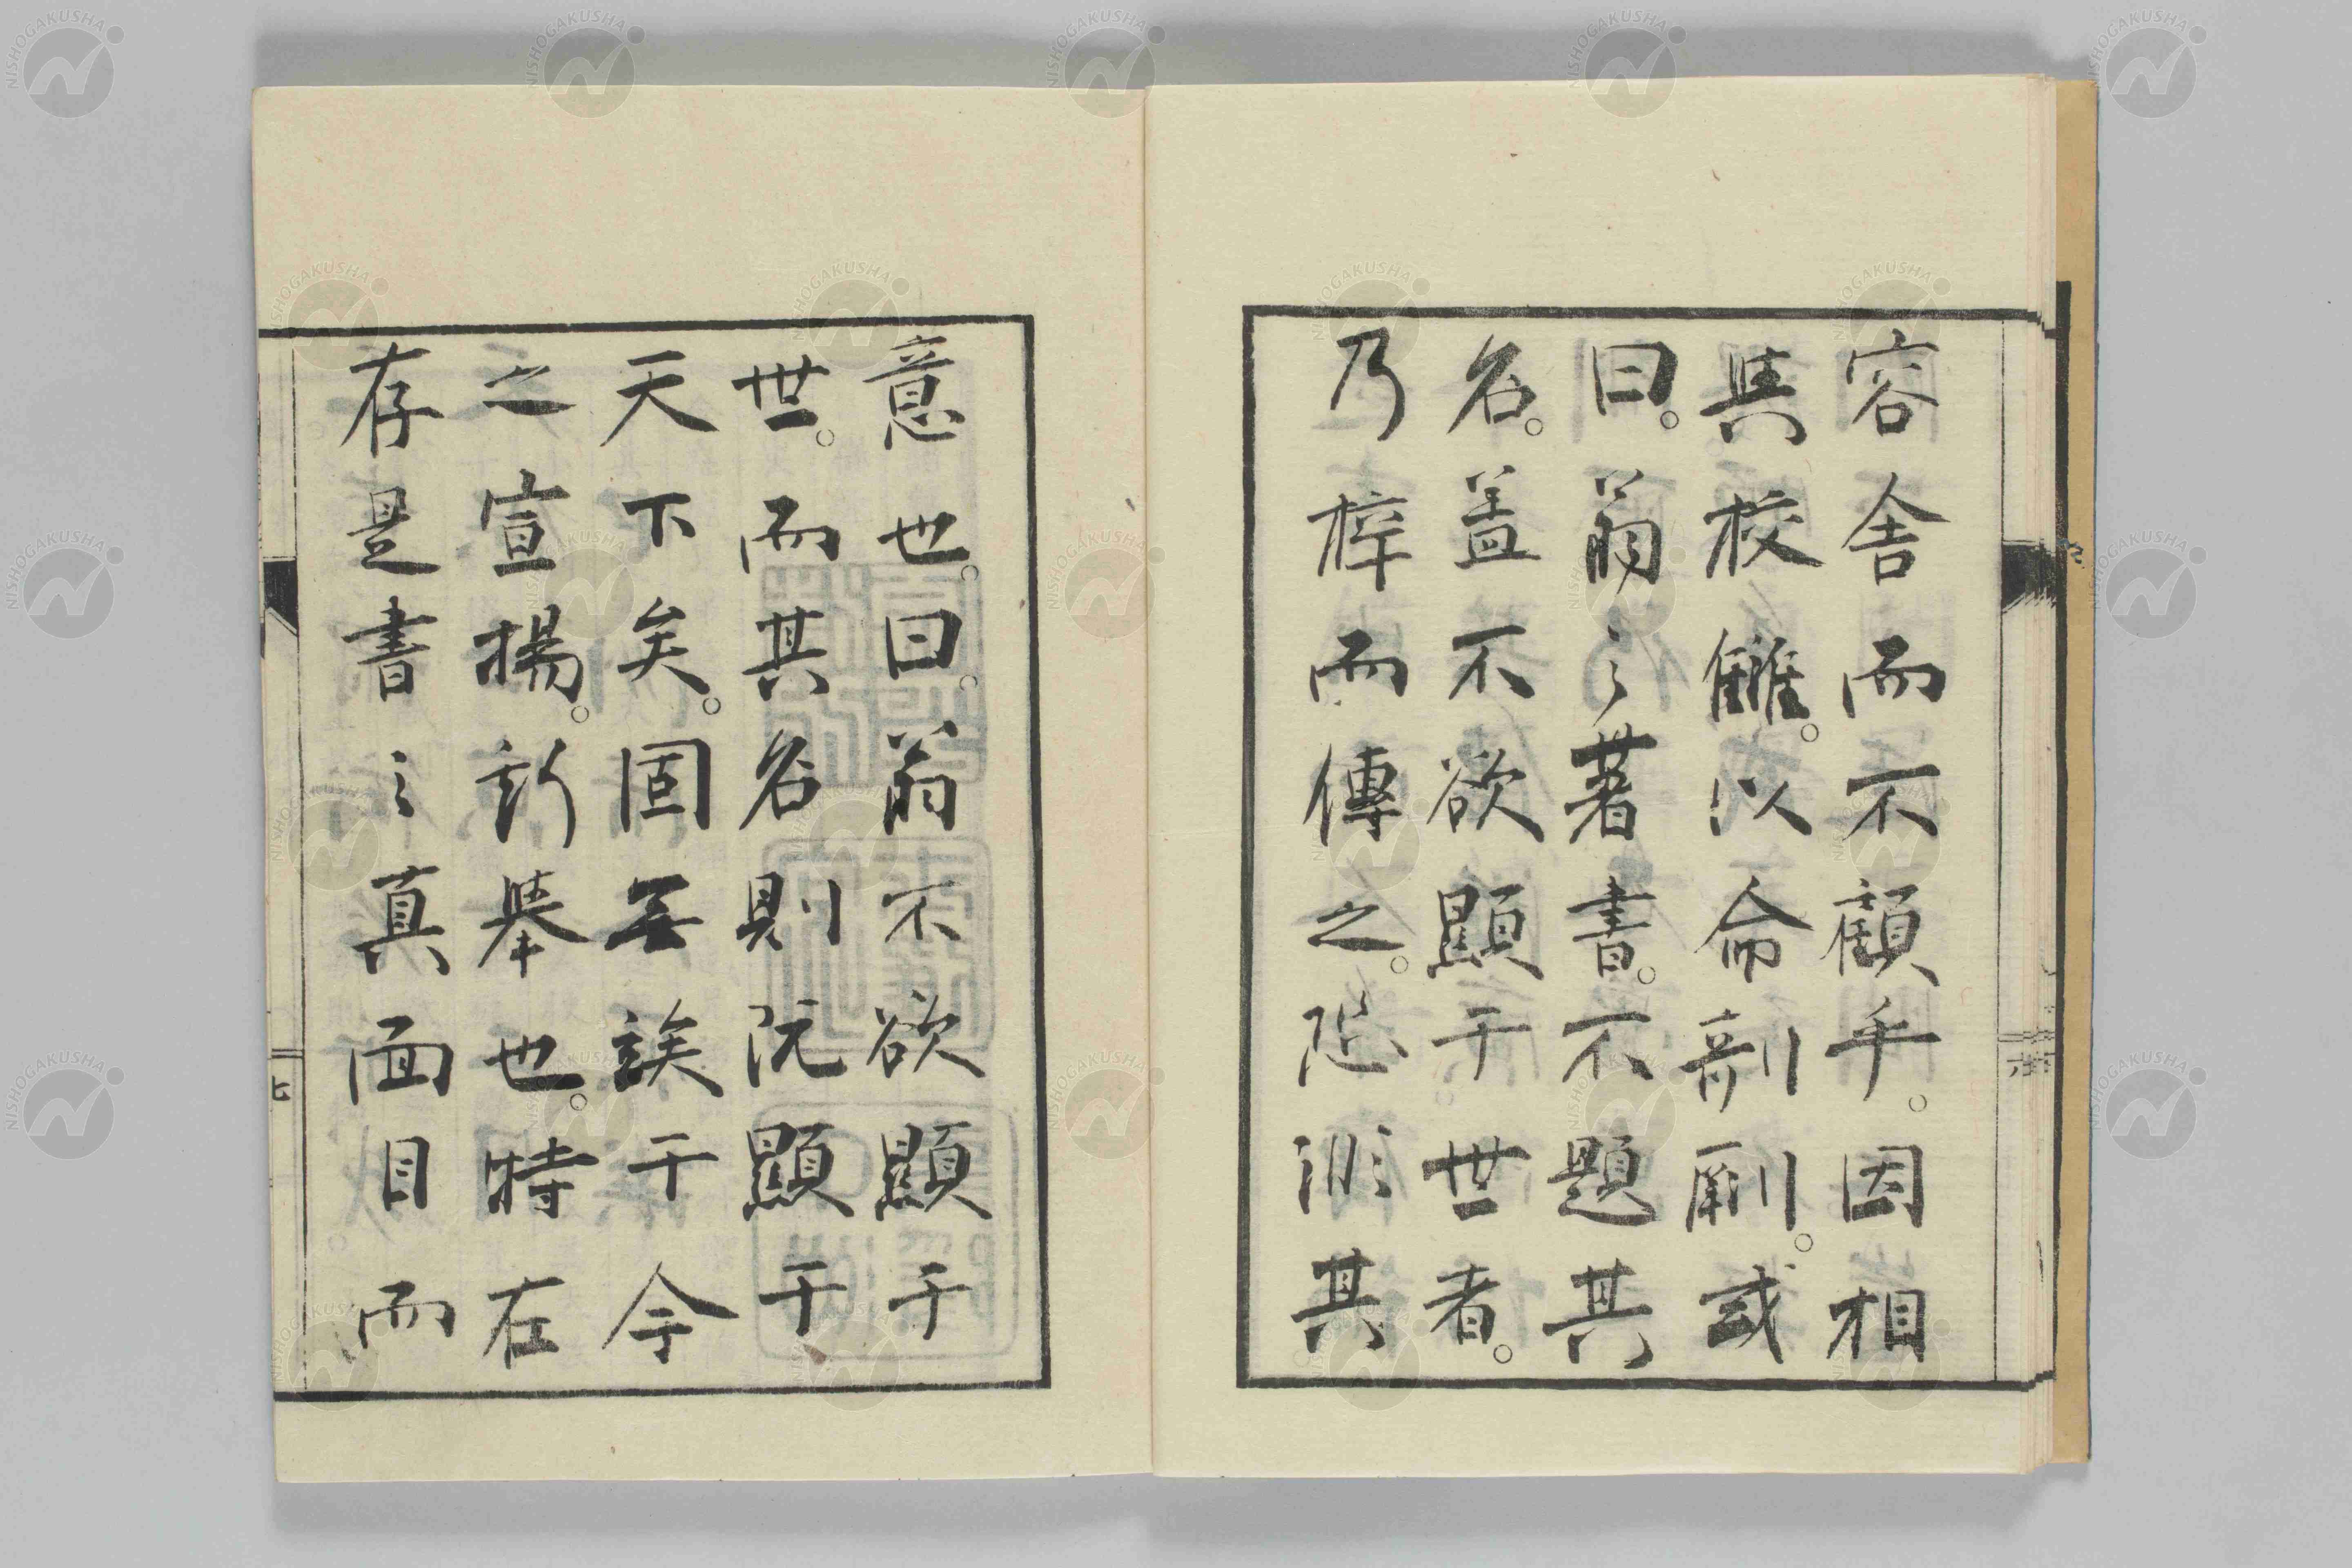 容舍而不顧乎。因相
與校讎。以命剞劂。或
曰。翁之著書。不題其
名。蓋不欲顯于世者。
乃梓而傳之。恐非其
意也。曰。翁不欲顯于
世。而其名則既顯于
天下矣。固無俟于今
之宣揚。斯舉也。特在
存是書之真面目而